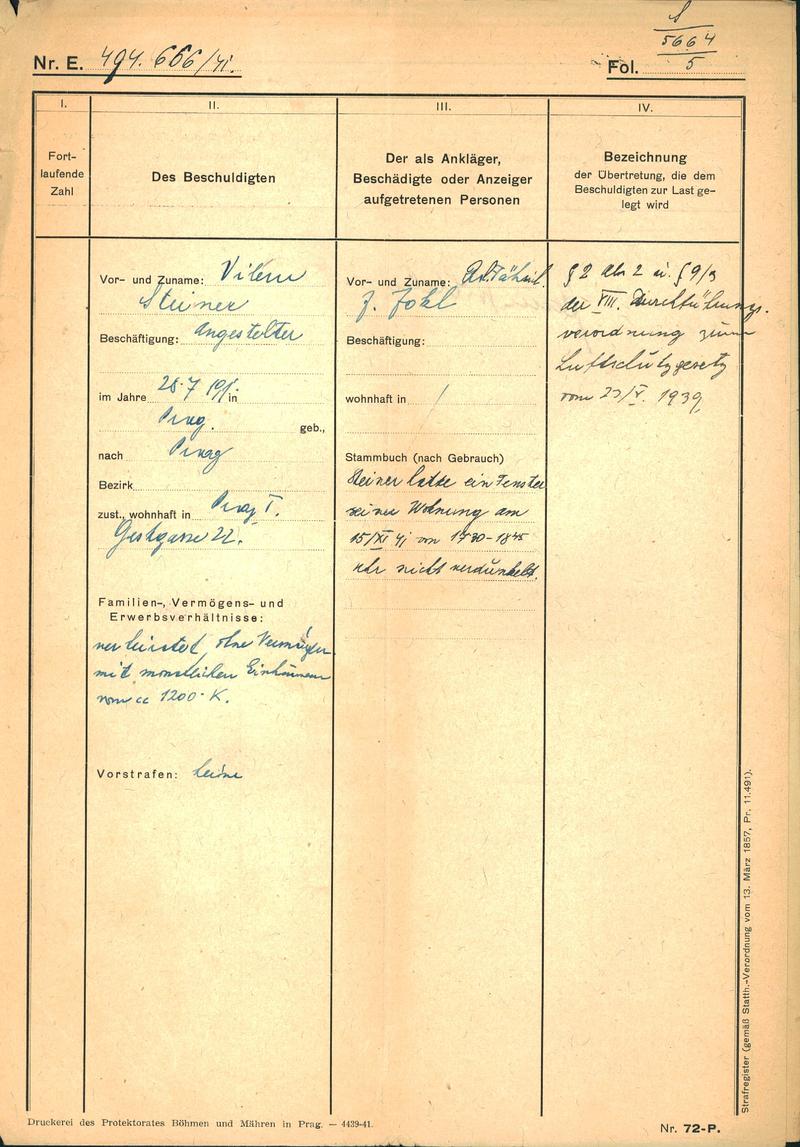 S
5664
5
Nr. E. 494.666/41.
Fol.
I.
Fort-
laufende
Zahl
II.
Des Beschuldigten
III.
Der als Ankläger,
Beschädigte oder Anzeiger
aufgetretenen Personen
IV.
Bezeichnung
der Übertretung, die dem
Beschuldigten zur Last ge-
legt wird
Vor- und Zuname: Vilém
Steiner
Beschäftigung: Angestelter
im Jahre 28.7 in
Prag. geb.,
nach Prag
Bezirk
zust., wohnhaft in Prag I.
22.
Familien-, Vermögens- und
Erwerbsverhältnisse:
ohne Vermögen
mit monatlichen Einkommen
von cc 1200·K.
Vorstrafen: keine
Vor- und Zuname:
J. Jokl
Beschäftigung:
wohnhaft in /
Stammbuch (nach Gebrauch)
Steiner hatte ein Fenster
seiner Wohnung am
15/XI 41 von 1730-1845
Uhr nicht verdunkelt.
§ 2 Abs 2 u. § 9/3
der VIII. Durchführungs-
verordnung zum
Luftschutzgesetz
vom 23/V. 1939,
Strafregister (gemäß Statth.-Verordnung vom 13. März 1857, Pr. 11.491).
Druckerei des Protektorates Böhmen und Mähren in Prag. — 4439-41.
Nr. 72-P.